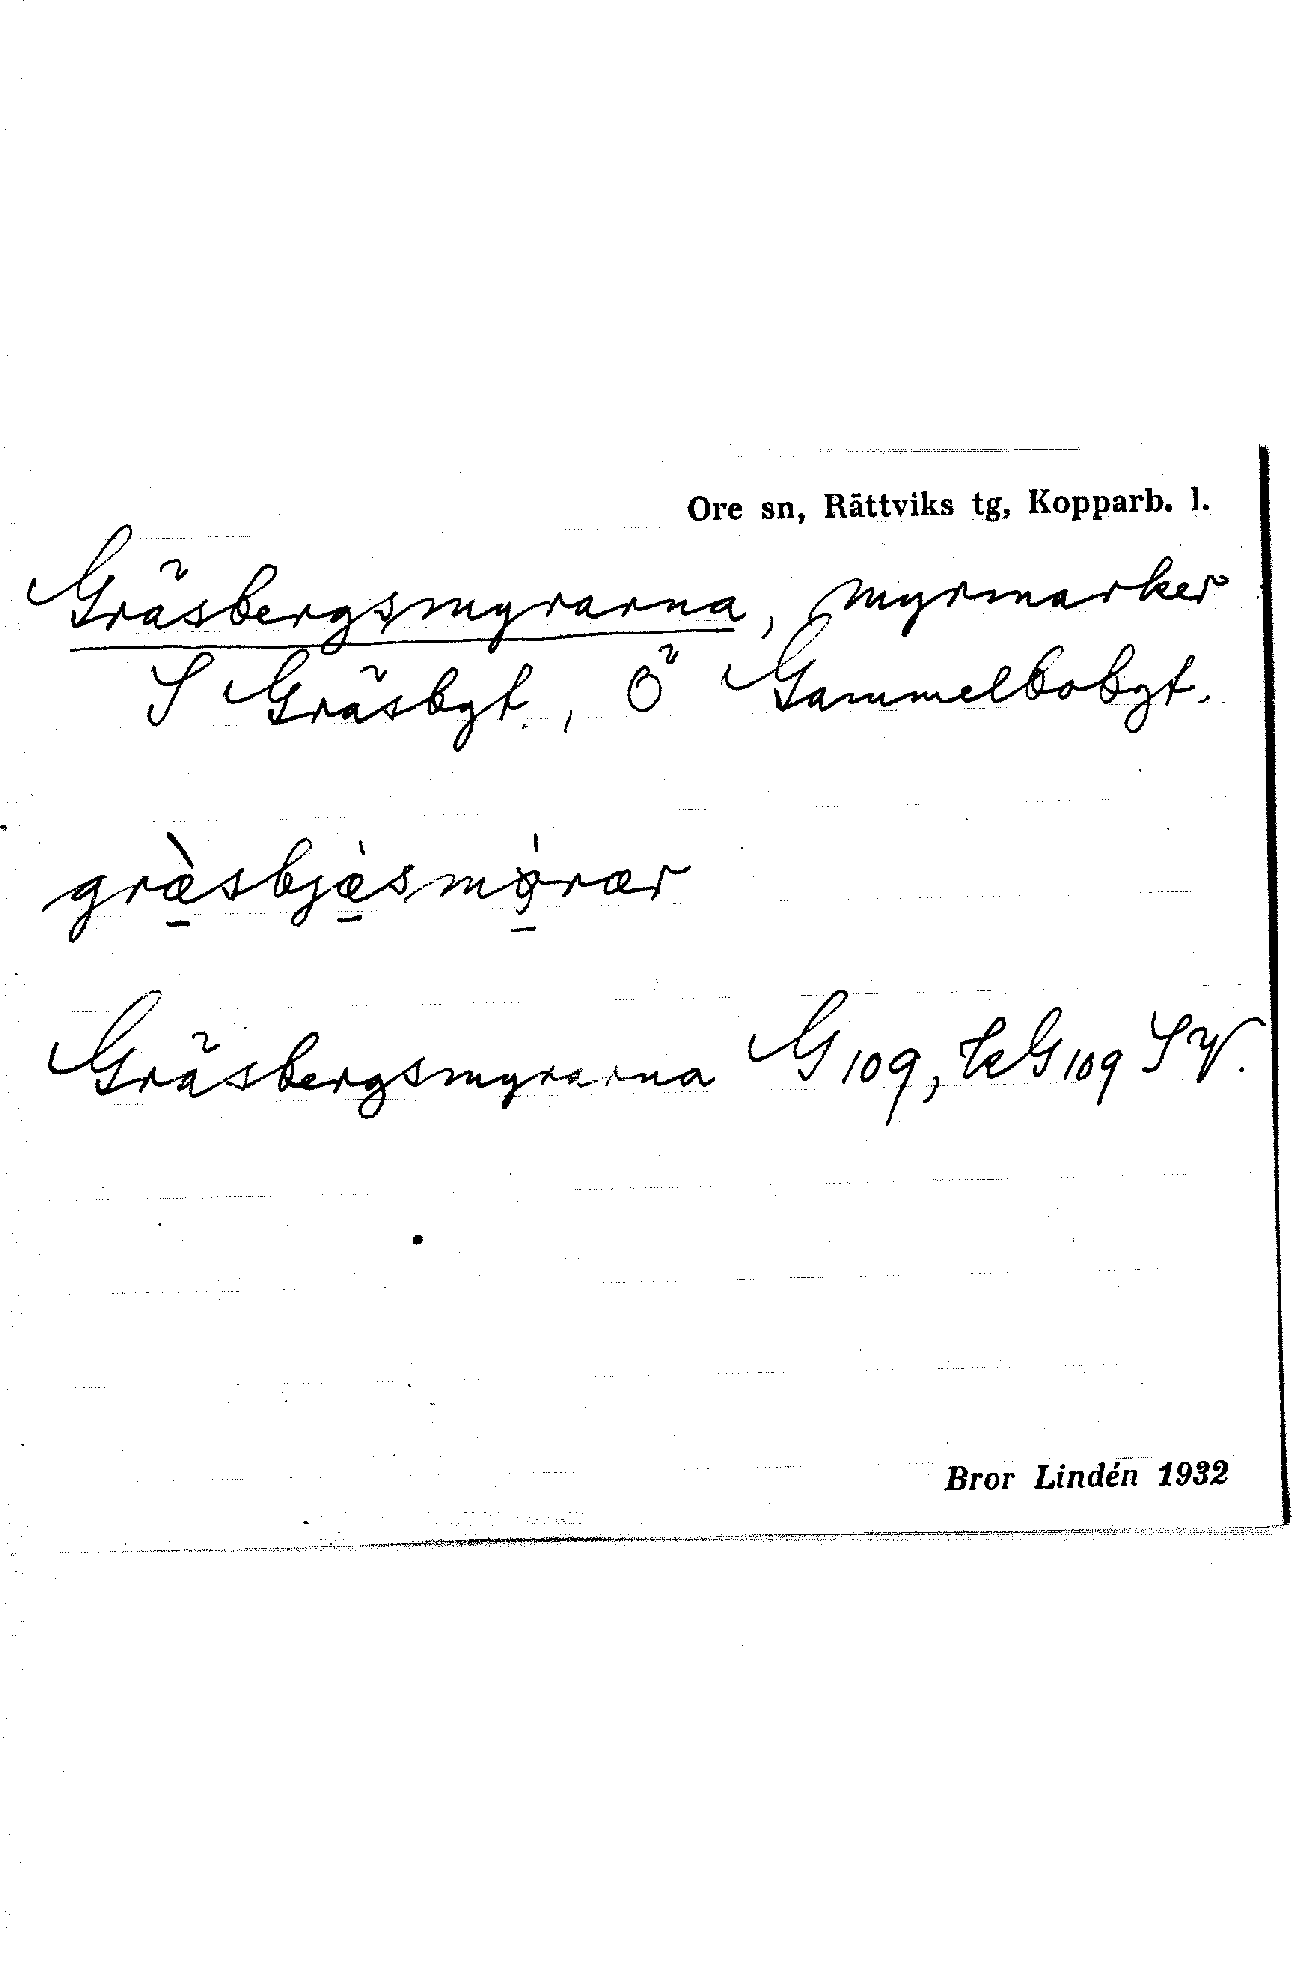 Ore sn, Rättviks tg, Kopparb. l.
Gräsbergsmyrarna, myrmarker
S Gräsbgt., Ö Gammelbobgt.
græ̀sbjæ̀smø̀rær
Gräsbergsmyrarna G109, kG109 SV.
Bror Lindén 1932